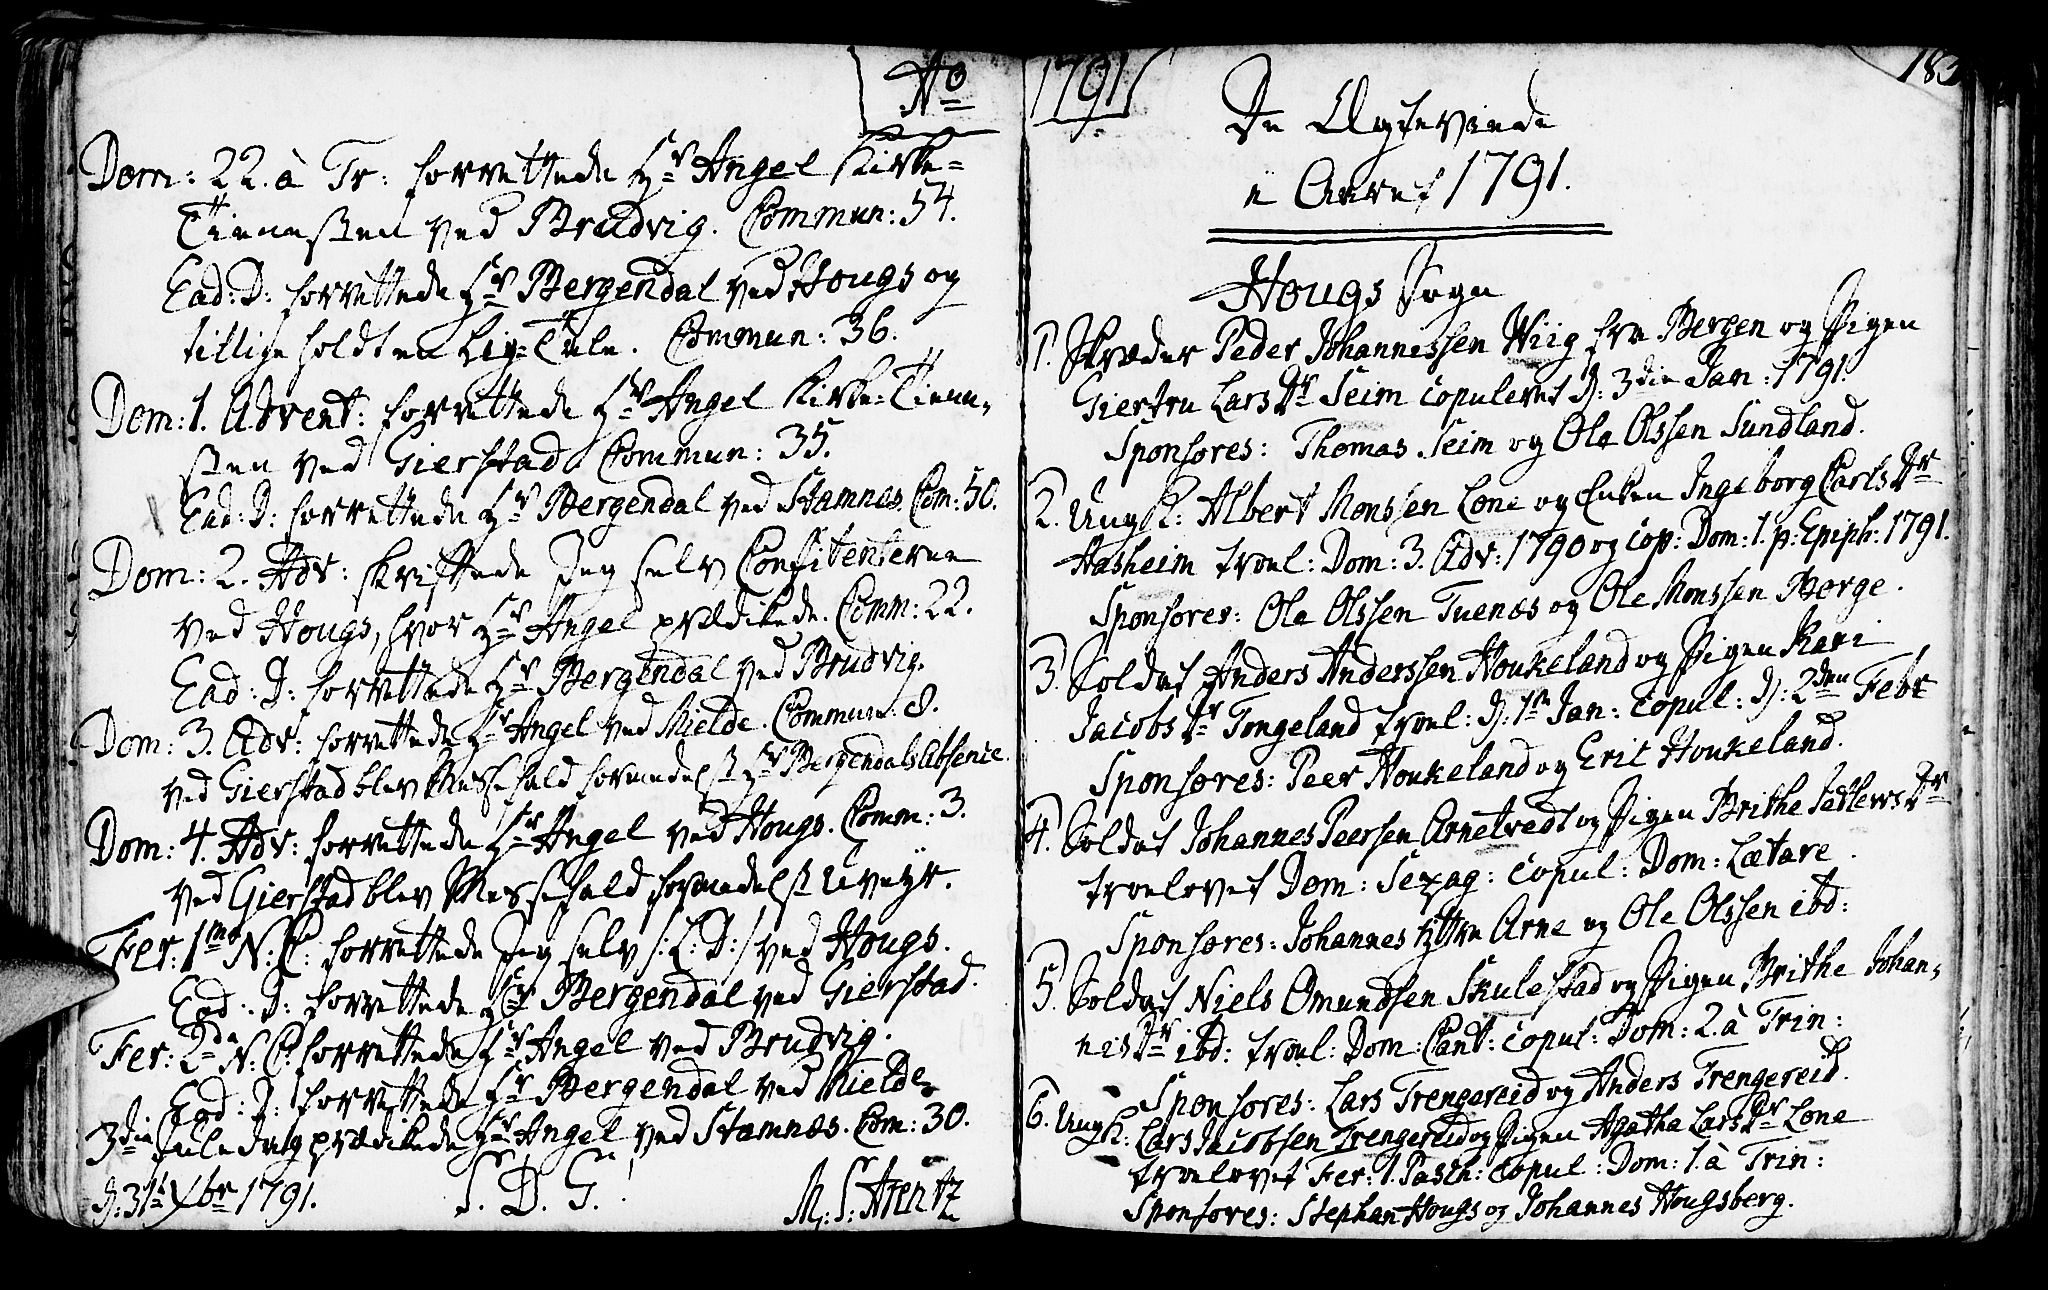 Ao
Dom: 22. à Tr: forrettede Hr Angel Kirke=
Tienesten ved Brudvig. Commun: 54.
Ead: D: forrettede Hr Bergendal ved Hougs og
tillige holdt en Lig=Tale. Commun: 36.
Dom: 1. Advent: forrettede Hr Angel Kirke=Tiene,
sten ved Gierstad Commun: 35.
Ead: D: forrettede Hr Bergendal ved Stamnes. Com: 50.
Dom: 2. Adv: skriftede Jeg selv Confitenterne
ved Hougs, hvor Hr Angel prædikede. Comm: 22.
Ead: D: forrettede Hr Bergendal ved Brudvig.
Dom: 3. Adv: forrettede Hr Angel ved Kielde. Commun: 8.
ved Gierstad blev Messefald formedelst Hr Bergendals Absence.
Dom: 4. Adv: forrettede Hr Angel ved Hougs. Comm: 3.
ved Gierstad blev Messefald formedelst Uveyr.
Fer: 1ma N: C: forrettede Jeg selv /: L: D: / ved Hougs.
Ead: D: forrettede Hr Bergendal ved Gierstad.
Fer: 2da N. C: forrettede Hr Angel ved Brudvig.
Ead: D: forrettede Hr Bergendal ved Kielde.
3die Juledag prædikede Hr Angel ved Stamnæs. Com: 30.
d: 31te Xbr 1791. S. D. G.! M: S: Arentz
1791
183
De Ægteviede
i Aaret 1791.
Hougs Sogn
1. Skræder Peder Johannessen Wiig fra Bergen og Pigen
Giertru Lars Dr Seim copuleret d: 3die Jan: 1791.
Sponsores: Thomas Seim og Ole Olssen Sundland.
2. Ungk: Albert Monssen Lone og Enken Ingeborg Carls Dr
Aasheim troel: Dom: 3. Adv: 1790 og cop: Dom: 1. p: Epiph: 1791.
Sponsores: Ole Olssen Tuenæs og Ole Monssen Børge.
3. Soldat Anders Anderssen Houkeland og Pigen Kari
Jacobs Dr Tongeland troel: d: 1te Jan: copul: d: 2den Febr
Sponsores: Peer Houkeland og Eric Houkeland.
4. Soldat Johannes Peersen Arnetvedt og Pigen Brithe Jetlevs Dr
troelovet Dom: Sexag: copul: Dom: Lætare.
Sponsores: Johannes Yttre Arne og Ole Olssen ibd:
5. Soldat Niels Omundsen Skulestad og Pigen Brithe Johan,
nis Dr ibd: troel: Dom: Cant: copul: Dom: 2. à Trin:
Sponsores: Lars Trengereid og Anders Trengereid.
6. Ungk: Lars Jacobsen Trengereid og Pigen Agatha Lars Dr Lone
troelovet Fer: 1. Pasch: copul: Dom: 1. à Trin:
Sponsores: Stephan Hougs og Johannes Hougsberg.